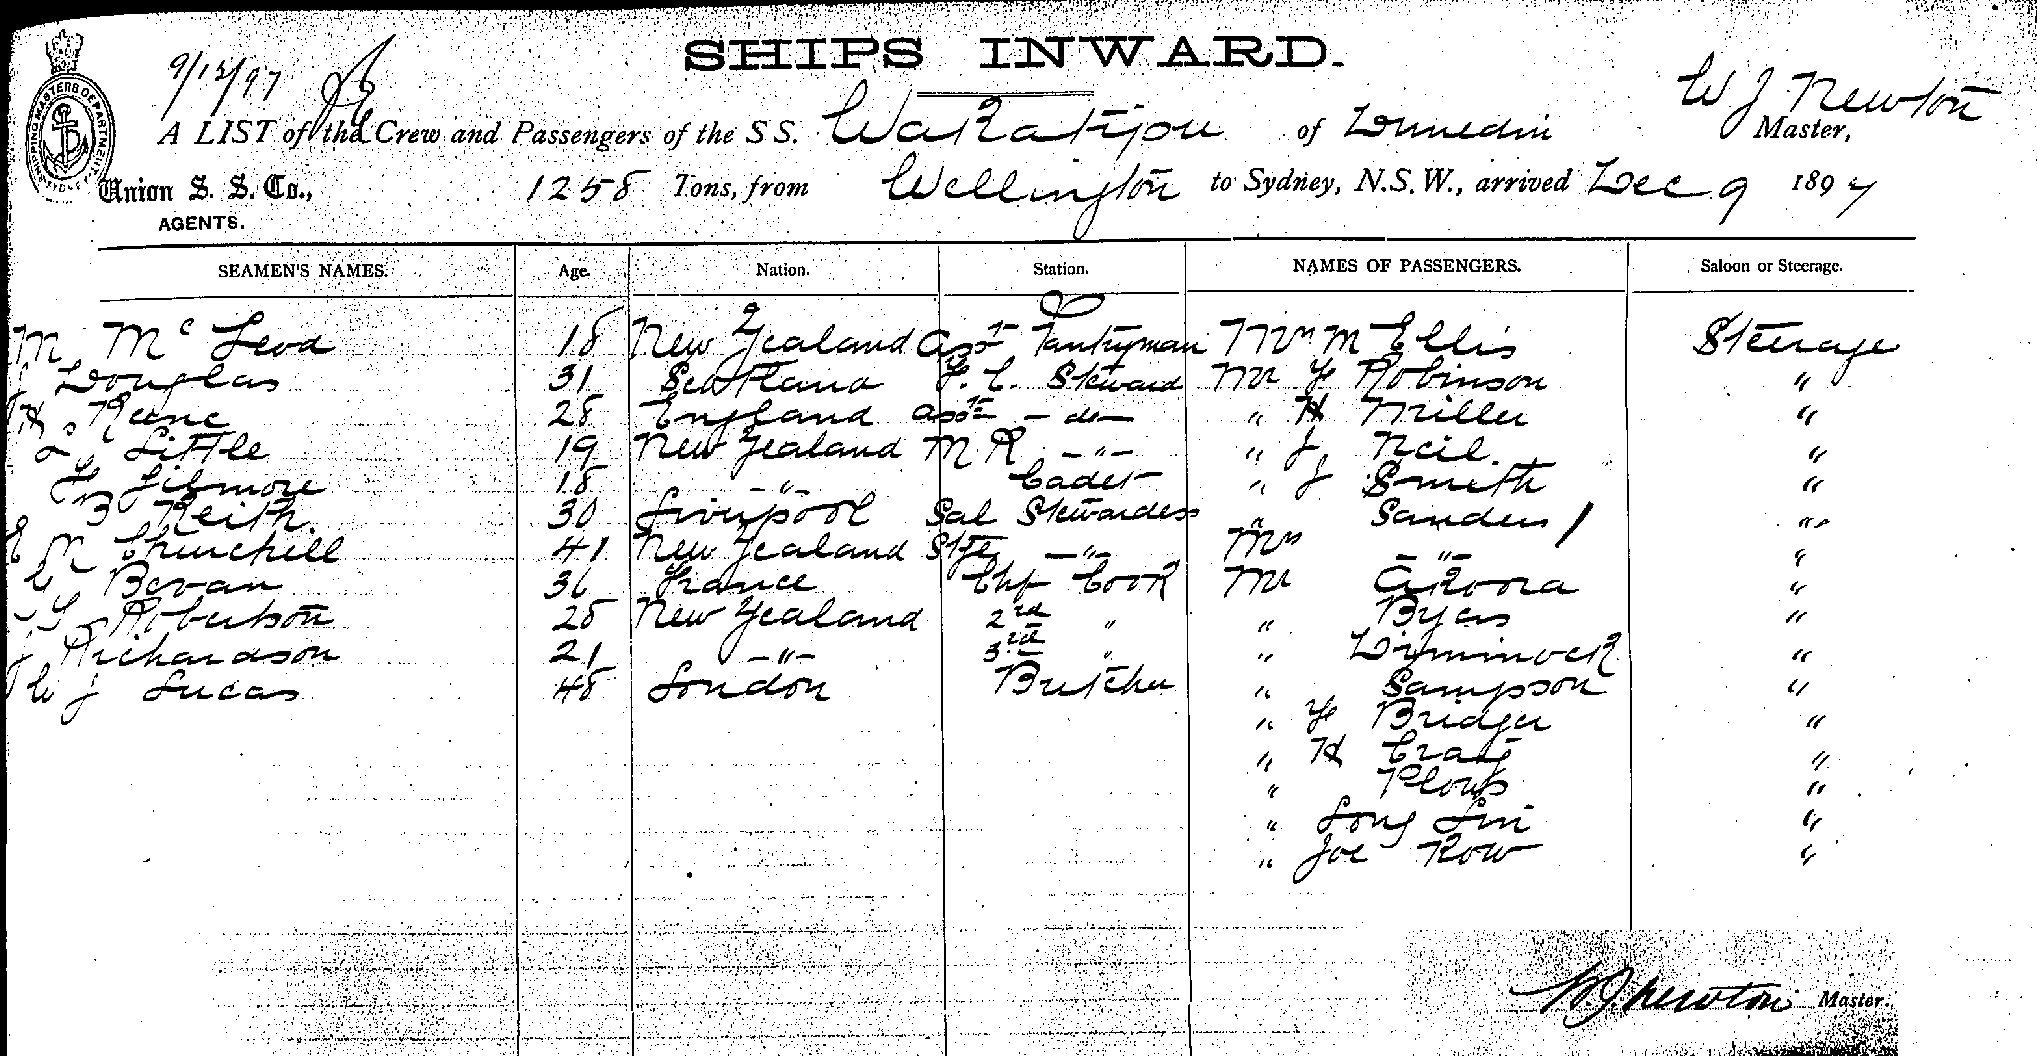 SHIPS INWARD.
9/12/97
W J Newton
A LIST of the Crew and Passengers of the SS. Wakatipu of Dunedin Master,
Union S. S. Co., 1258 Tons, from Wellington to Sydney, N.S.W., arrived Dec 9 1897
AGENTS.
SEAMEN'S NAMES. Age. Nation. Station. NAMES OF PASSENGERS. Saloon or Steerage.
M. Mc Leod 18 New Zealand Asst Pantryman Mrs M Ellis Steerage
J Douglas 31 Scotland F. C. Steward Mr F Robinson "
H. Keene 28 England Asst - do - " H Miller "
L. Little 19 New Zealand M R - " - " J. Neil. "
Gilmore 18 - " - Cadet " J Smith "
B Keith. 30 Liverpool Sal Stewardess " Sanders "
E M Churchill 41 New Zealand Stge - " - Mrs - " - "
Bevan 36 France Chf Cook Mr "
Robertson 28 New Zealand 2nd " " Byers "
J Richardson 21 - " - 3rd " " Dimmock "
W J Lucas 48 London Butcher " Sampson "
" F Bridger "
" H Craig "
" "
" Long "
" Joe Kow "
W. J. Newton Master.